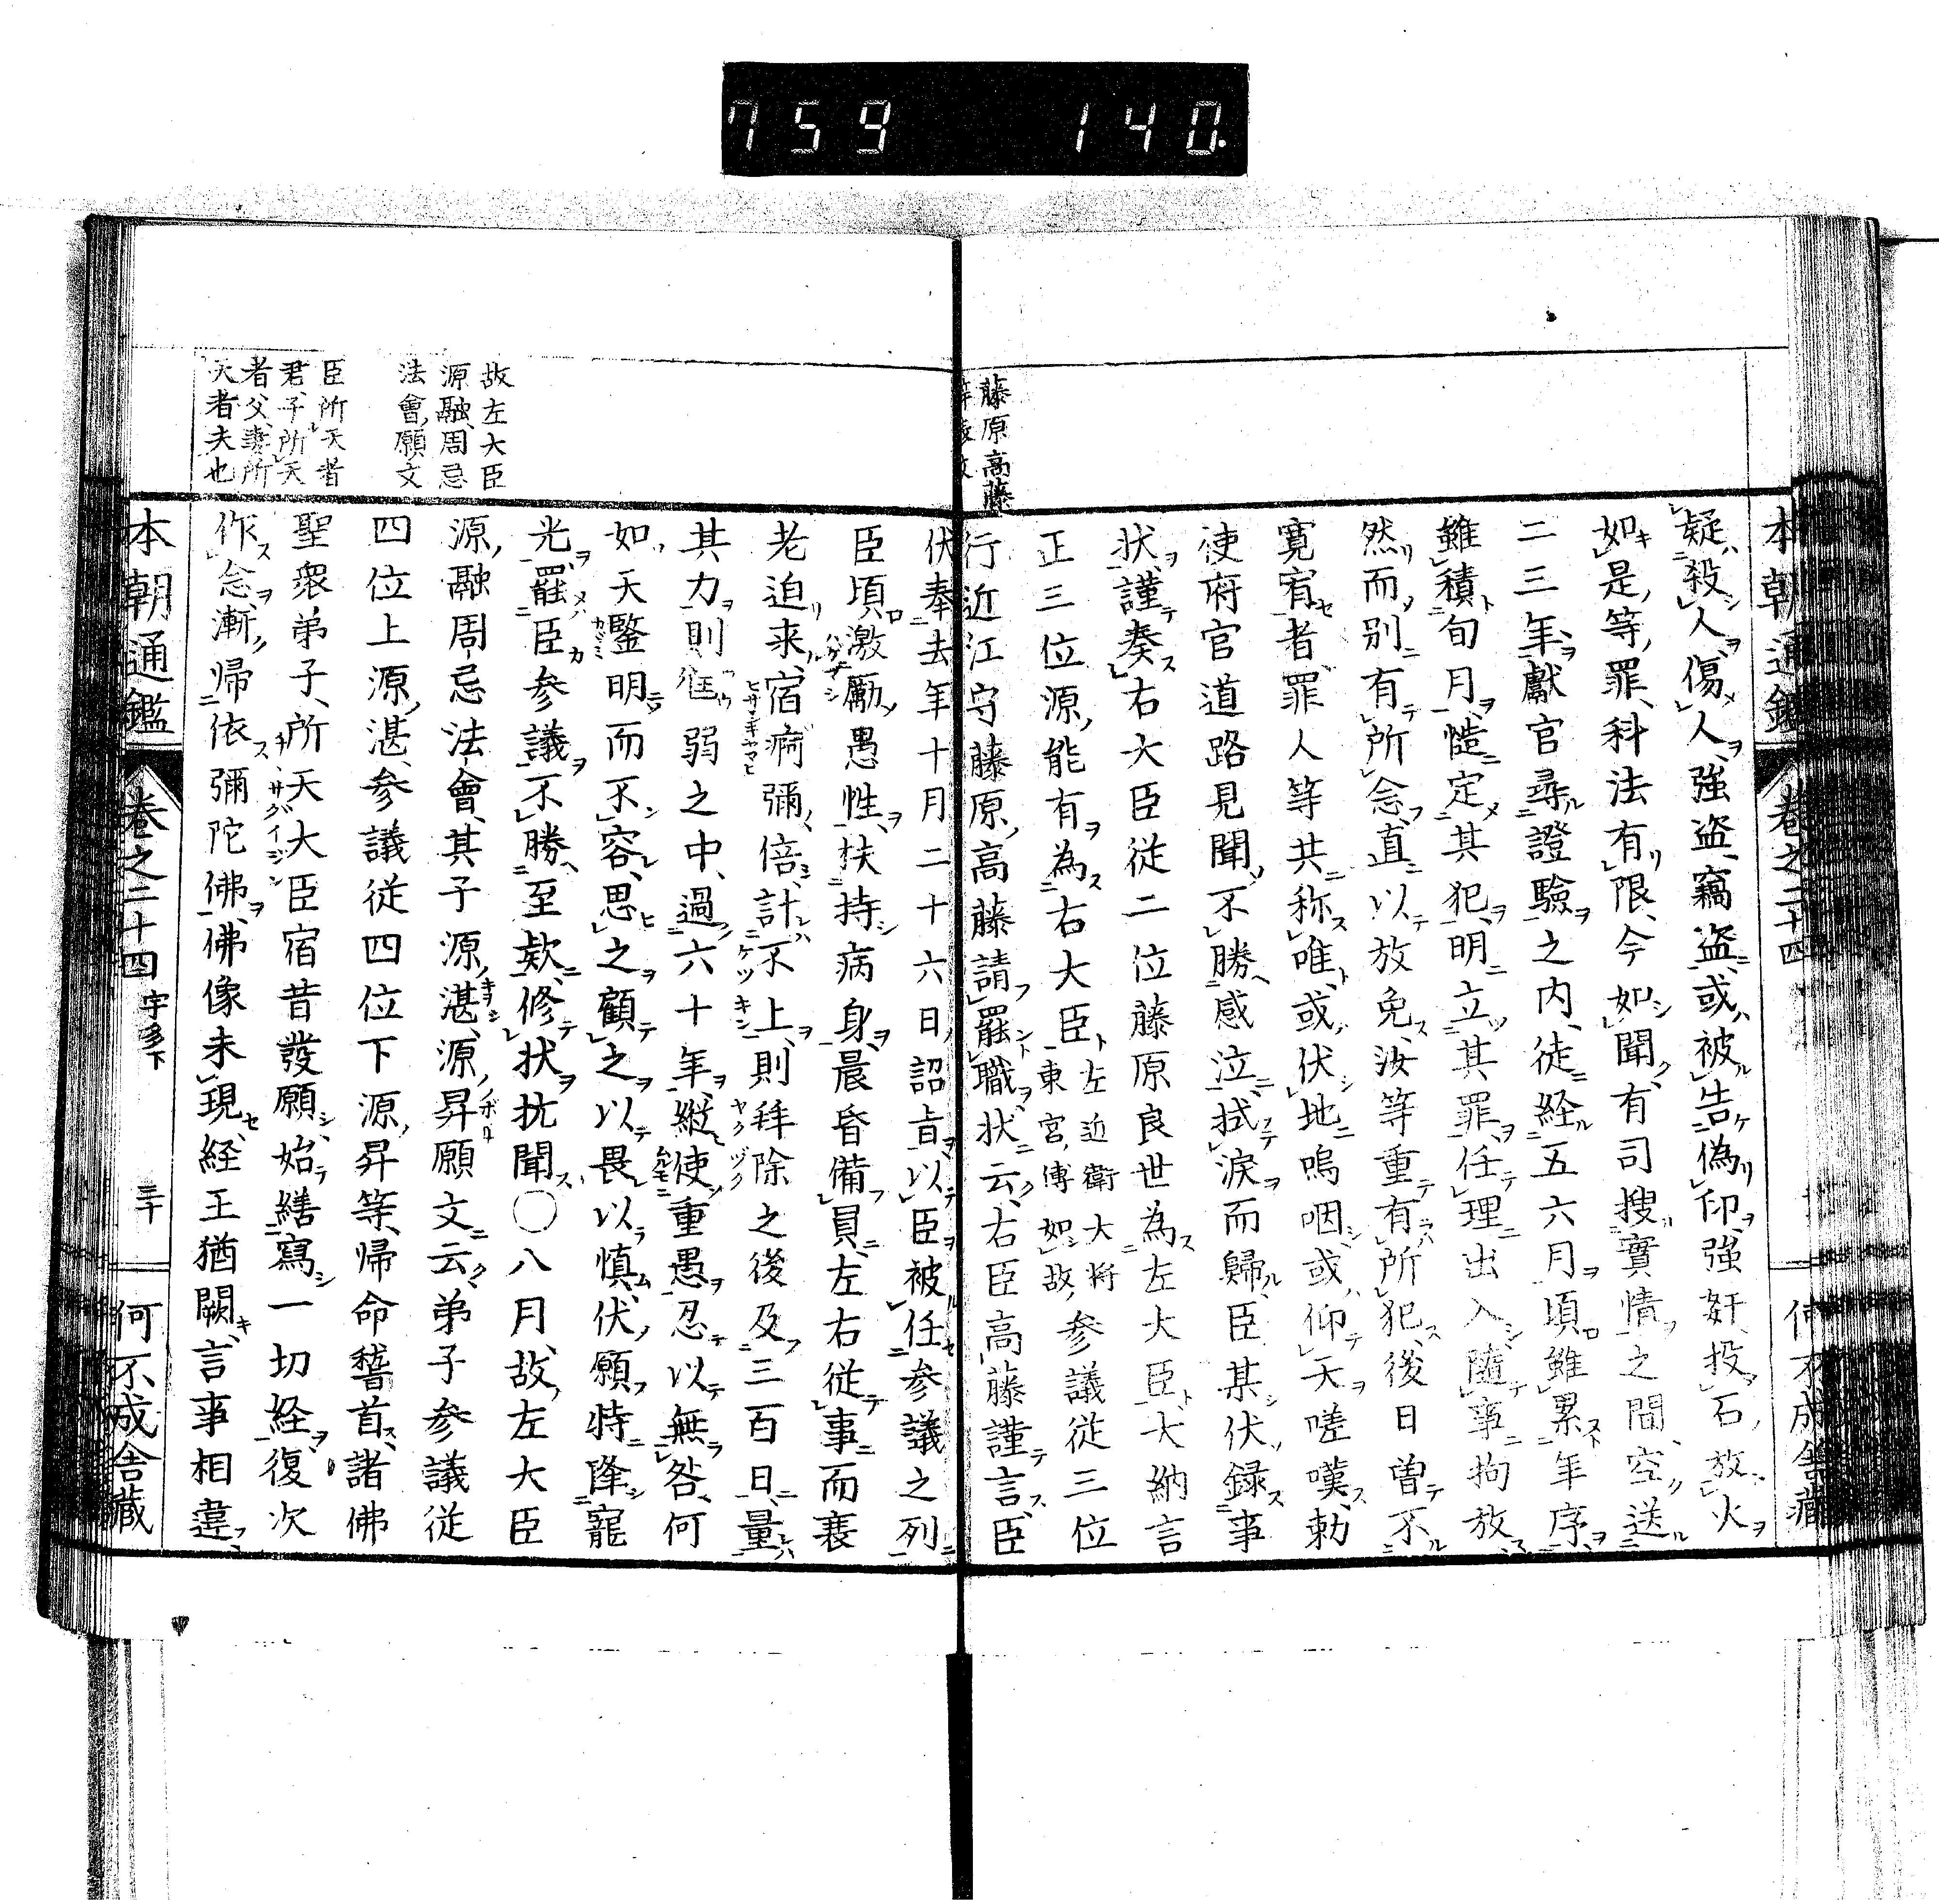 759 140.
本朝通鑑 卷之二十四 何不成舍藏
疑殺人傷人強盗竊盗或被告偽印強奸投石放火
如是等罪科法有限今如聞有司搜實情之間空送
二三年獻官尋證驗之内徒経五六月頃雖累年序
雖積旬月慥定其犯明立其罪任理出入隨事拘放
然而別有所念直以放免汝等重有所犯後日曽不
寛宥者罪人等共称唯或伏地嗚咽或仰天嗟嘆勅
使府官道路見聞不勝感泣拭涙而歸臣某伏録事
状謹奏右大臣従二位藤原良世為左大臣大納言
正三位源能有為右大臣左近衛大将東宮傳如故参議従三位
行近江守藤原高藤請罷職状云右臣高藤謹言臣
藤原高藤
伏奉去年十月二十六日詔旨以臣被任参議之列
臣頃激勵愚性扶持病身晨昏備員左右従事而衰
老迫来宿痾彌倍計不上則拜除之後及三百日量
其力則尫弱之中過六十年縦使重愚忍以無咎何
如天鑒明而不容思之顧之以畏以慎伏願特降寵
光罷臣参議不勝至欵修状抗聞〇八月故左大臣
源融周忌法會其子源湛源昇願文云弟子参議従
四位上源湛参議従四位下源昇等帰命稽首諸佛
聖衆弟子所天大臣宿昔發願始繕寫一切経復次
作念漸帰依彌陀佛佛像未現経王猶闕言事相違
故左大臣
源融周忌
法會願文
臣所天者
君子所天
者父妻所
天者夫也
本朝通鑑 卷之二十四 宇多下 三十 何不成舍藏